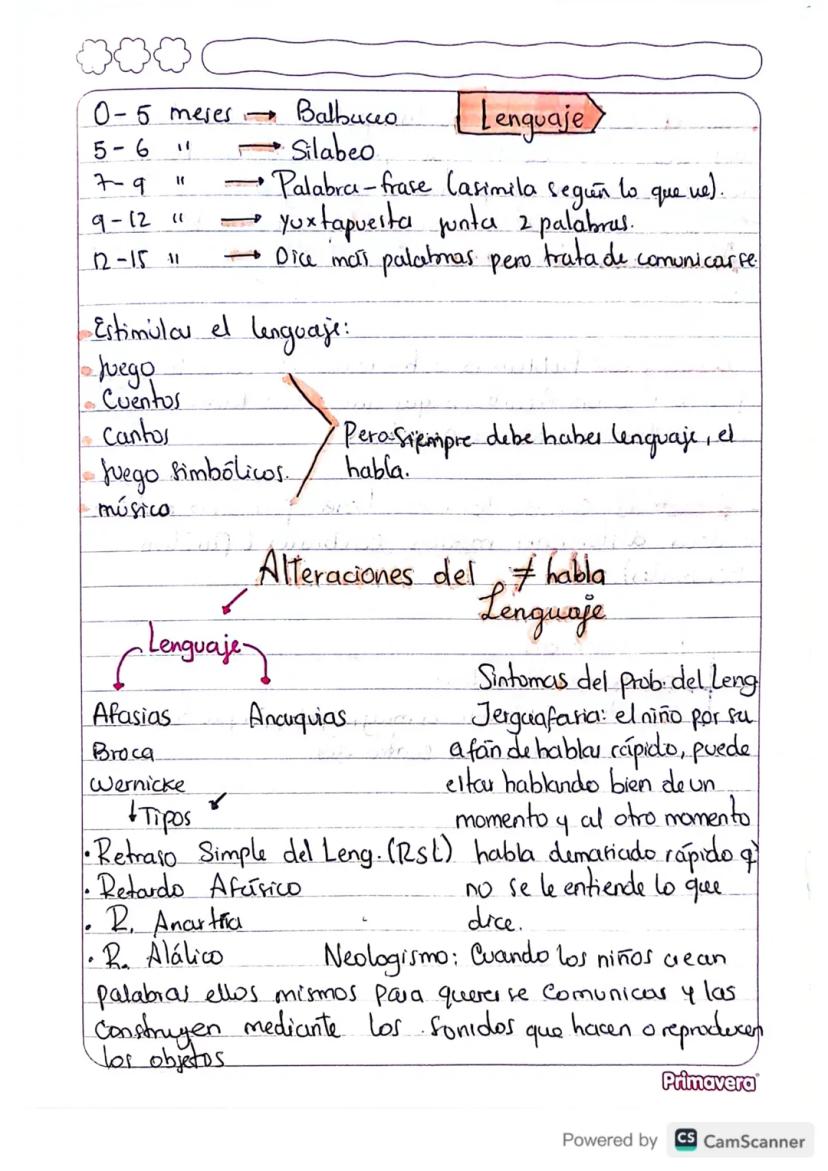 Lenguaje
0-5 meses → Balbuceo
5-6 " → Silabeo
7-9 " → Palabra-frase (asimila según lo que ve).
9-12 " → yuxtapuesta junta 2 palabras.
12-15 " → Dice más palabras pero trata de comunicarse
Estimular el lenguaje:
• Juego
• Cuentos
• Cantos
• Juego simbólicos.
• música
Pero siempre debe haber lenguaje, el
habla.
Alteraciones del ≠ habla
Lenguaje
Lenguaje
Afasias Anarquias
Broca
Wernicke
↓ Tipos ↙
• Retraso Simple del Leng. (RSL)
• Retardo Afásico
• R. Anartria
• R. Alálico
Sintomas del prob. del Leng
Jergafasia: el niño por su
afán de hablar rápido, puede
estar hablando bien de un
momento y al otro momento
habla demasiado rápido q'
no se le entiende lo que
dice.
Neologismo: Cuando los niños crean
palabras ellos mismos para quererse comunicar y las
construyen mediante los sonidos que hacen o reproducen
los objetos
Primavera
Powered by CS CamScanner